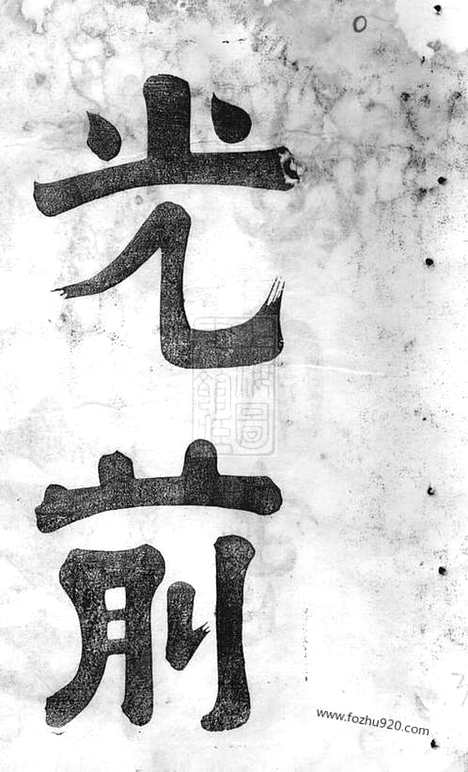 光
前
www.fozhu920.com